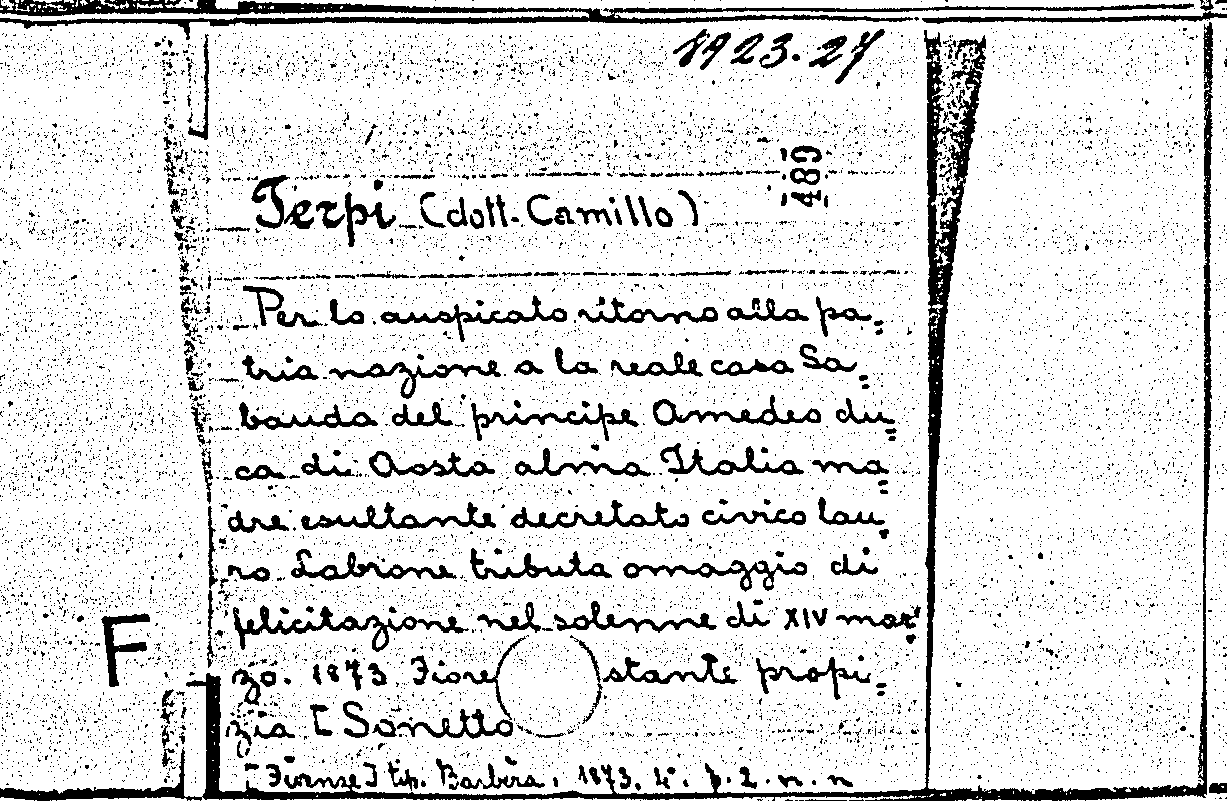 1923.27
489
Terpi (dott. Camillo)
Per lo auspicato ritorno alla pa=
tria nazione a la reale casa Sa=
bauda del principe Amedeo du=
ca di Aosta alma Italia ma=
dre esultante decretato civico lau=
ro Labrone tributa omaggio di
felicitazione nel solenne di XIV mar=
zo. 1873 Fiore stante propi=
zia [Sonetto
[Firenze] tip. Barbèra, 1873. 4°. p. 2. n. n
F